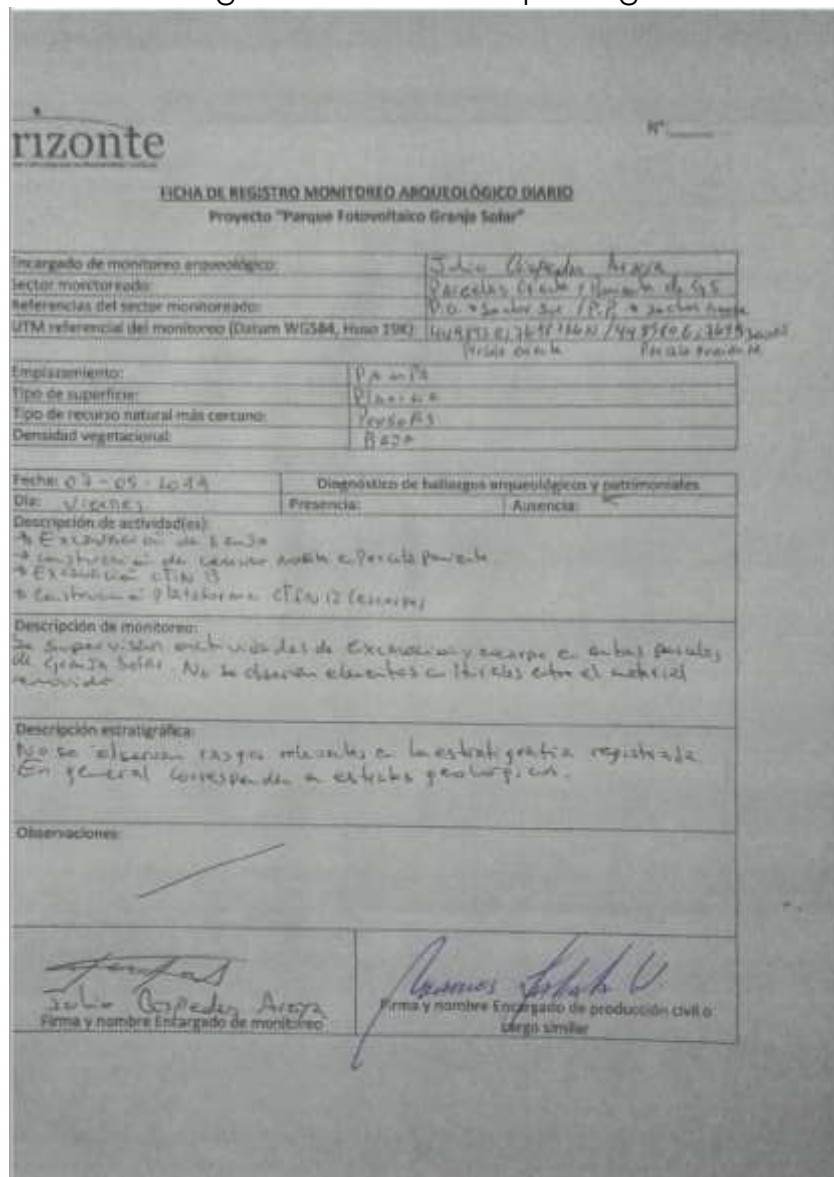 rizonte
N°
FICHA DE REGISTRO MONITOREO ARQUEOLÓGICO DIARIO
Proyecto "Parque Fotovoltaico Granja Solar"
Encargado de monitoreo arqueológico: Julio Céspedes Araya
Sector monitoreado: Parcelas Oriente y Poniente de GS
Referencias del sector monitoreado: P.O. Sector Sur / P.P.
UTM referencial del monitoreo (Datum WGS84, Huso 19K):
Parcela Oriente Parcela Poniente
Emplazamiento: Pampa
Tipo de superficie:
Tipo de recurso natural más cercano:
Densidad vegetacional: Baja
Fecha: Diagnóstico de hallazgos arqueológicos y patrimoniales
Día: Viernes Presencia: Ausencia:
Descripción de actividad(es):
Excavación de
Construcción de camino Parcela Poniente
Excavación CTIN 13
Construcción Plataforma CTIN 12 (escarpe)
Descripción de monitoreo:
Se supervisan actividades de excavación y escarpe en ambas parcelas
de Granja Solar. No se observan elementos culturales entre el material
removido
Descripción estratigráfica:
No se observan rasgos relevantes en la estratigrafía registrada
En general corresponden a estratos geológicos.
Observaciones:
Julio Céspedes Araya
Firma y nombre Encargado de monitoreo
Firma y nombre Encargado de producción civil o
cargo similar